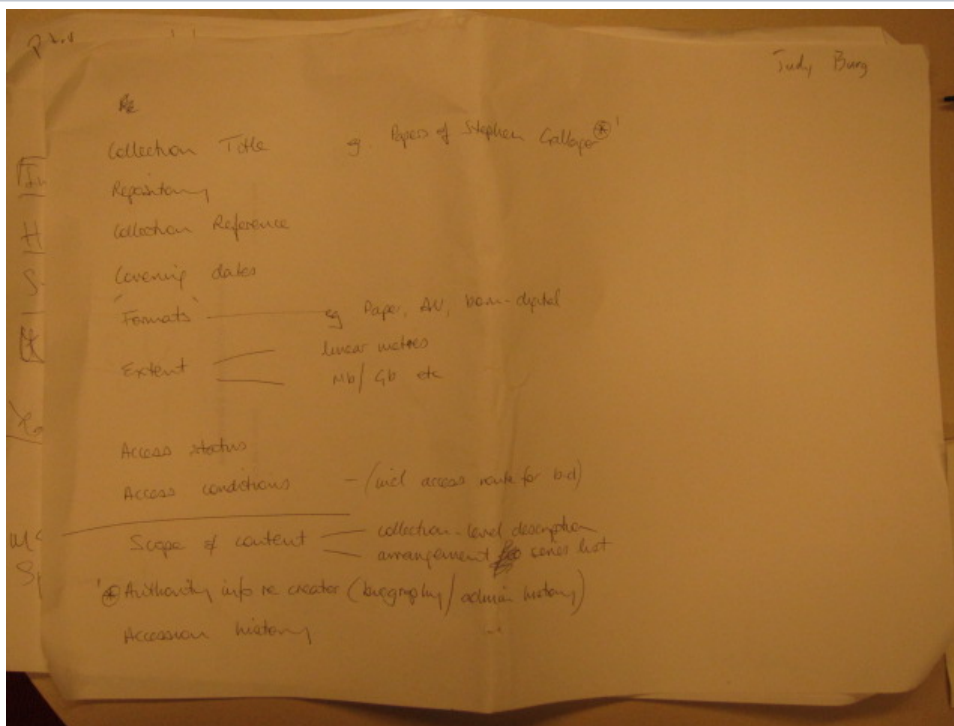 Judy Burg
Re
Collection Title eg. Papers of Stephen Gallagher
Repository
Collection Reference
Covering dates
'Formats' eg Paper, AV, born-digital
Extent linear metres
Mb/Gb etc
Access status
Access conditions - (incl access route for b-d)
Scope & content collection-level description
arrangement series list
Authority info re creator (biography/admin history)
Accession history